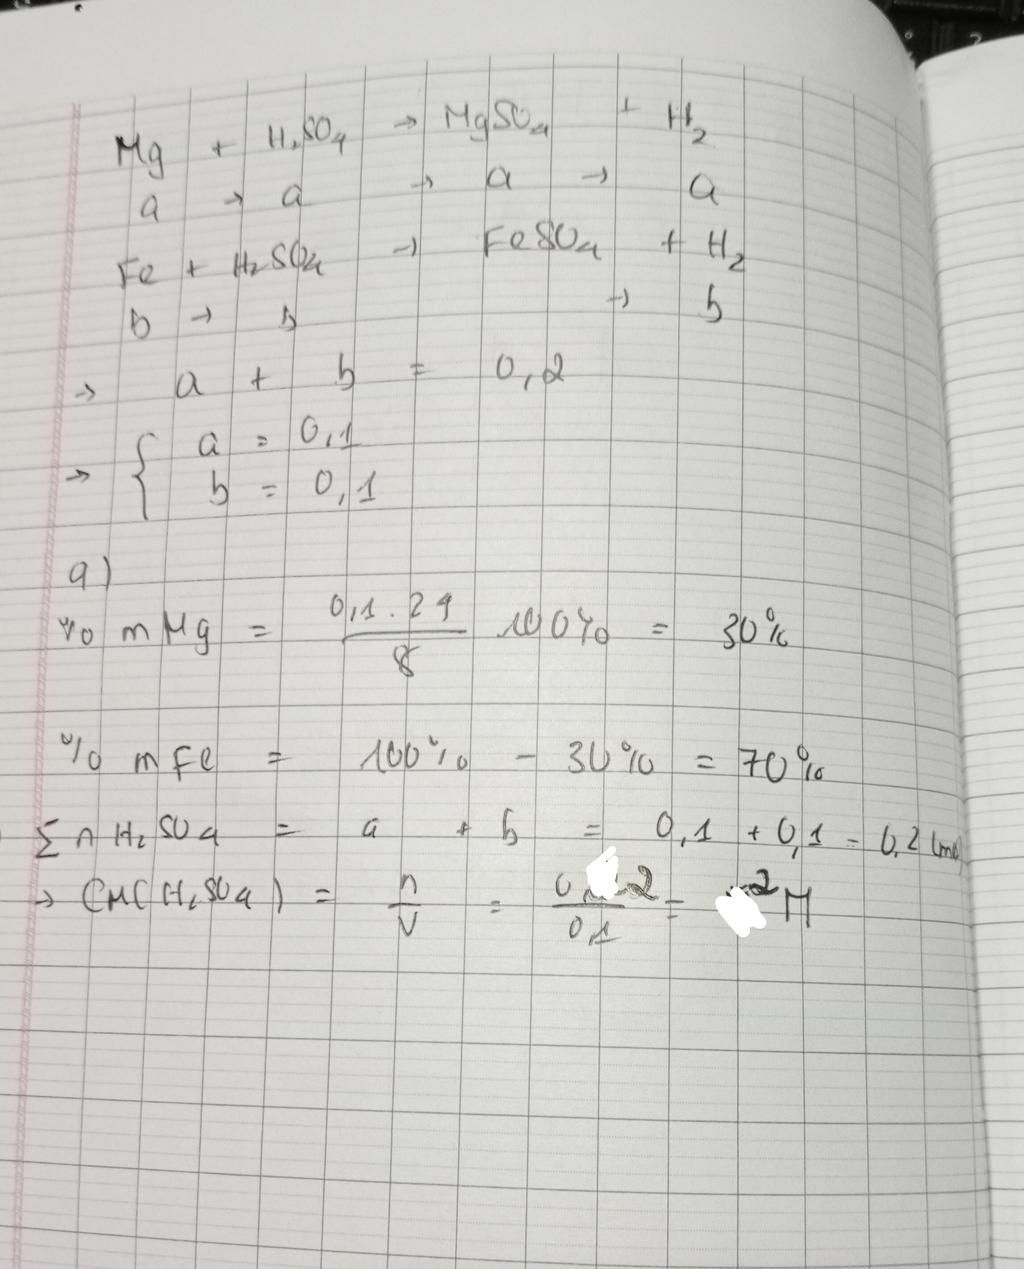 Mg + H2SO4 → MgSO4 + H2
a → a → a → a
Fe + H2SO4 → FeSO4 + H2
b → b → b
→ a + b = 0,2
→ { a = 0,1
b = 0,1
a)
% mMg = 0,1.24/8 100% = 30%
% mFe = 100% - 30% = 70%
Σ n H2SO4 = a + b = 0,1 + 0,1 = 0,2 (mol)
→ CM(H2SO4) = n/V = 0,2/0,1 = 2M